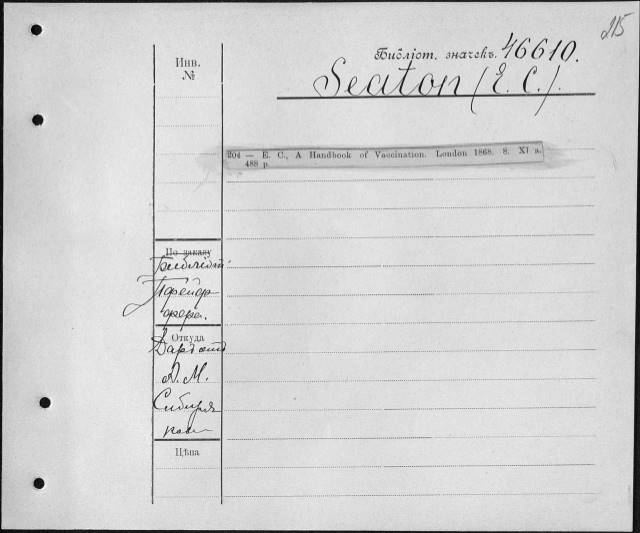 215
Библіот. значекъ. 46610.
Seaton (E. C.).
Инв.
№
204 — E. C., A Handbook of Vaccination. London 1868. 8. XI a.
488 p.
По заказу
Библіот
Пфейф
фера.
Откуда
Даръ отъ
А. М.
Сибиря
кова
Цѣна